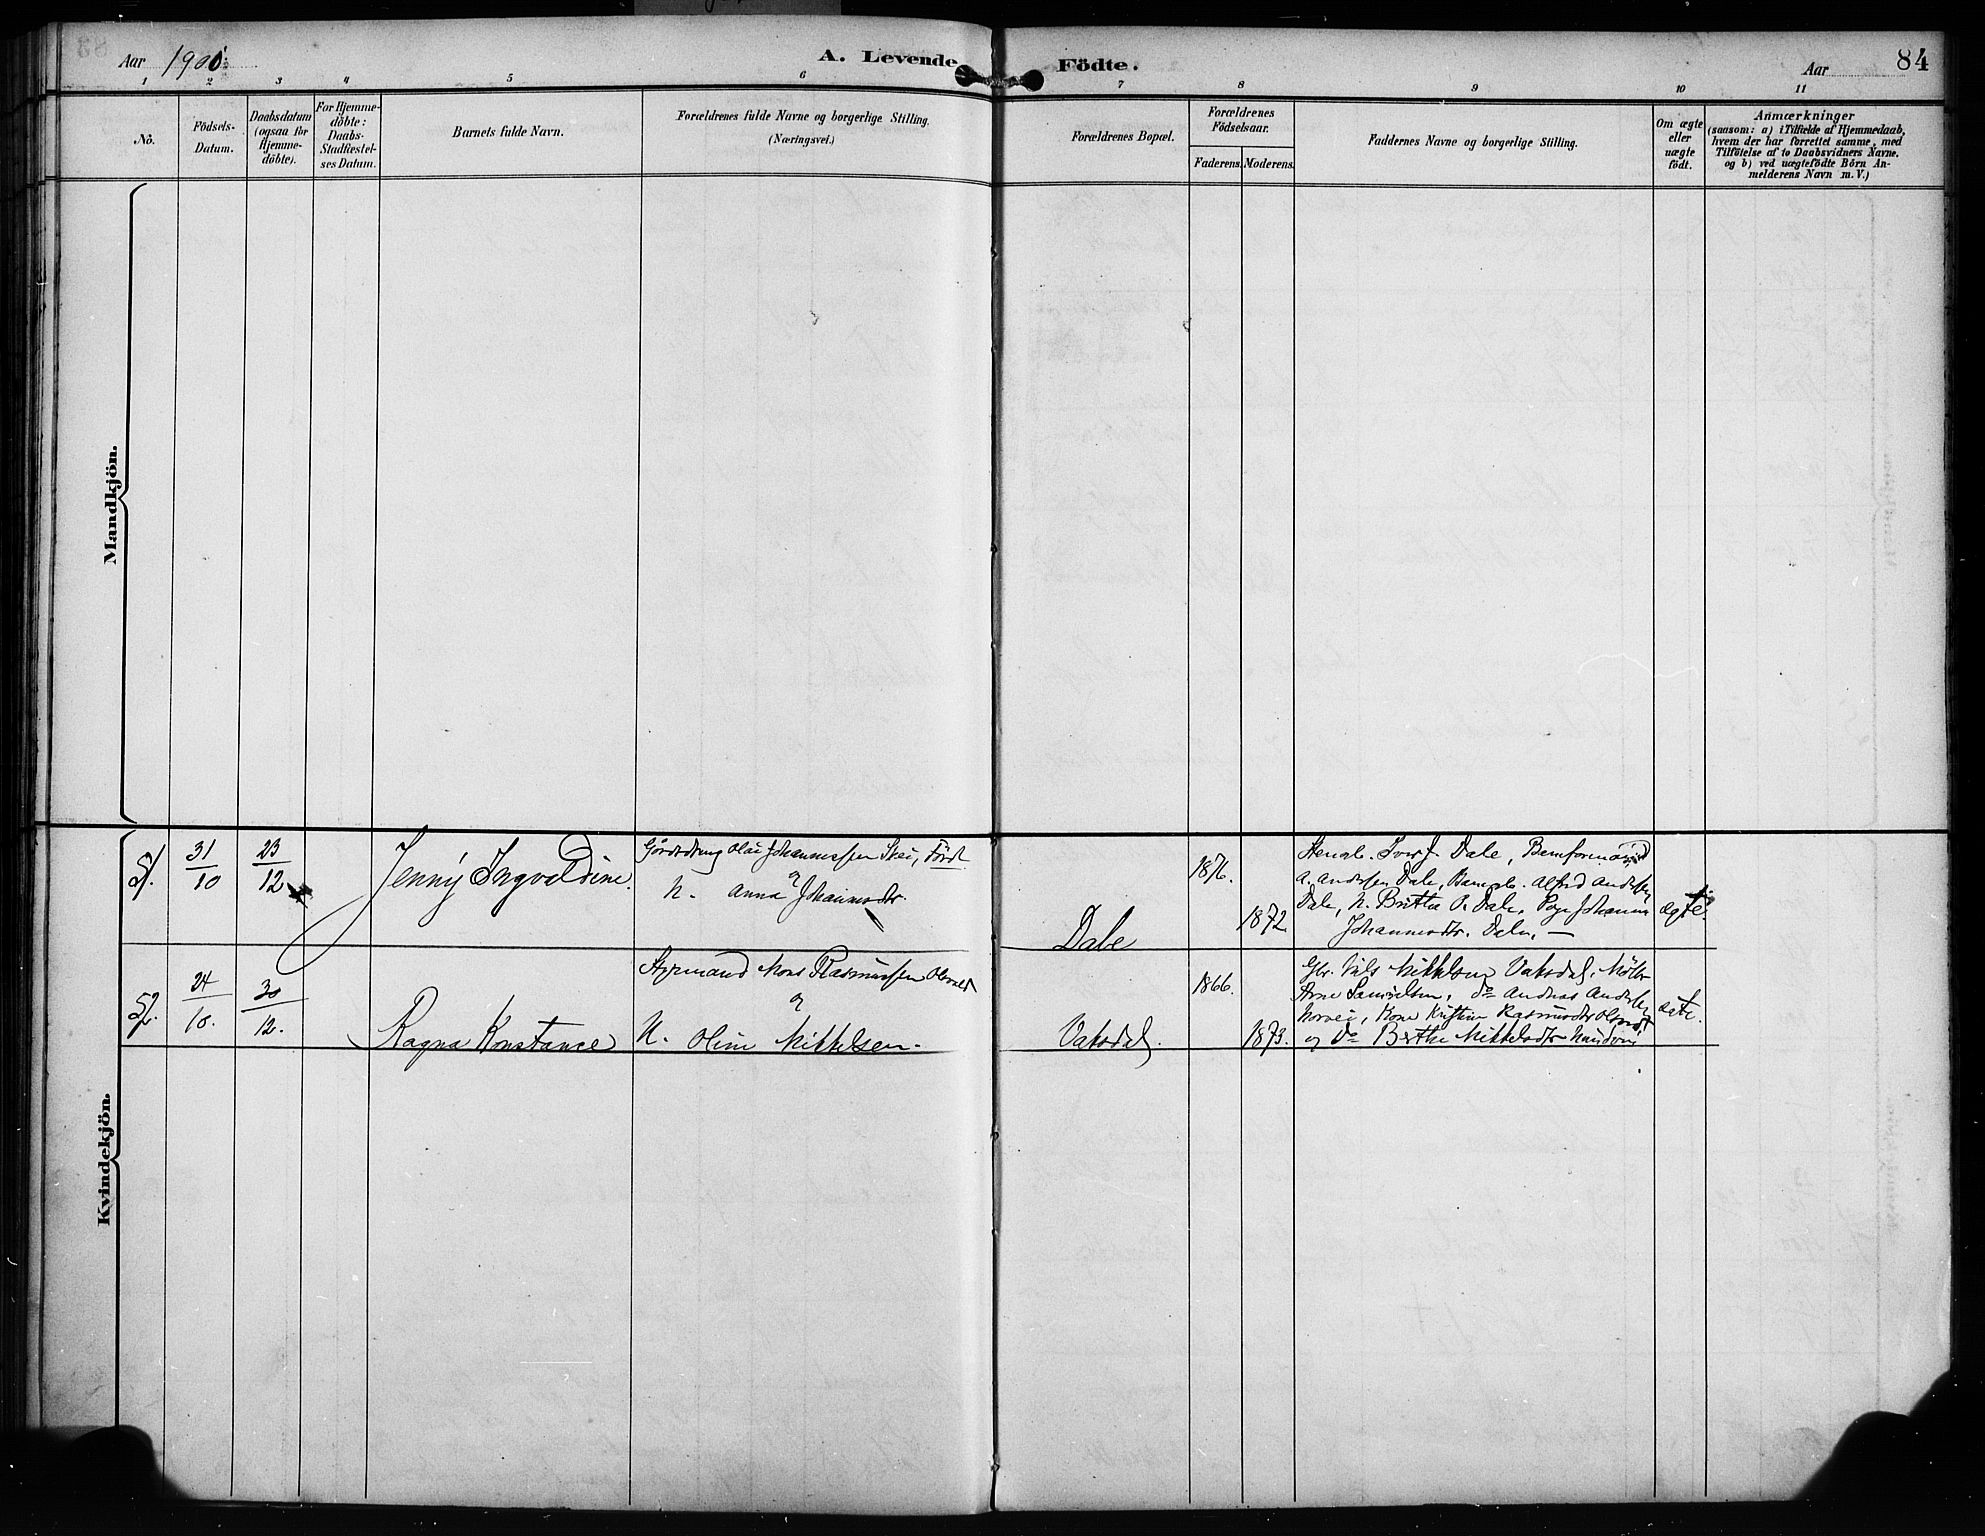 Aar 1900.
A. Levende Födte.
Aar
84
1 2 3 4 5 6 7 8 9 10 11
No.
Födsels-
Datum.
Daabsdatum
(ogsaa for
Hjemme-
döbte).
For Hjemme-
döbte:
Daabs-
Stadfæstel-
ses Datum.
Barnets fulde Navn.
Forældrenes fulde Navne og borgerlige Stilling.
(Næringsvei.)
Forældrenes Bopæl.
Forældrenes
Födselsaar.
Faderens. Moderens.
Faddernes Navne og borgerlige Stilling.
Om ægte
eller
uægte
födt.
Anmærkninger
(saasom: a) i Tilfælde af Hjemmedaab,
hvem der har forrettet samme, med
Tilföielse af to Daabsvidners Navne.
og b) ved uægtefödte Börn An-
melderens Navn m. V.)
Mandkjön.
51.
31/10
23/12
Jenny Ingvaldine.
Olai Johannessen Skei,
og
H. Anna Johannesdtr.
Dale
1876.
1872.
Iver J. Dale,
A. Andersen Dale, Alfred Andersen
Dale, H. Britha O. Dale, Pige Johanna
Johannesdtr. Dale. —
ægte.
52.
24/10.
30/12.
Ragna Konstance
Styrmand Mons Rasmussen
og
H. Oline Mikkelsen.
Vaksdal.
1866.
1873.
Gbr. Nils Mikkelsen Vaksdal,
Arne Samuelsen, do Andreas Andersen
Kone Kristine Rasmusdtr
og do Berthe Mikkelsdtr
ægte.
Kvindekjön.